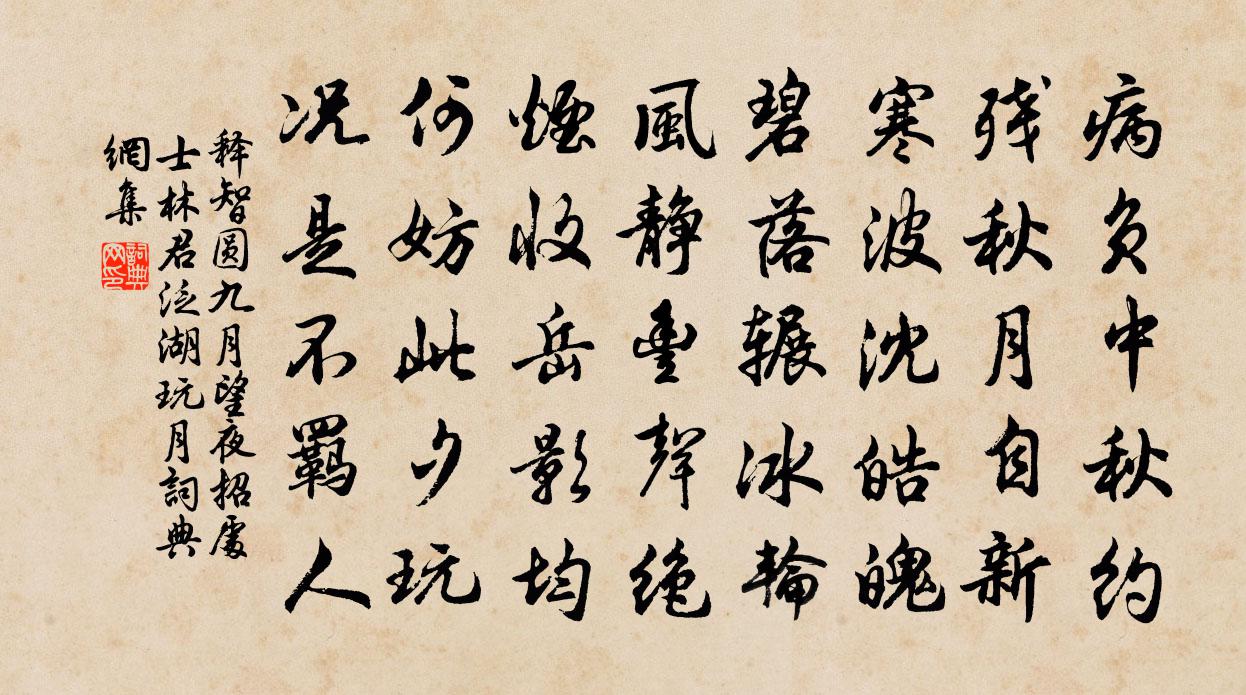 病负中秋约
残秋月自新
寒波沈皓魄
碧落辗冰轮
風静壑聲绝
煙收岳影均
何妨此夕玩
况是不羁人
释智圆九月望夜招處
士林君泛湖玩月詞典
網集
詞典
网印